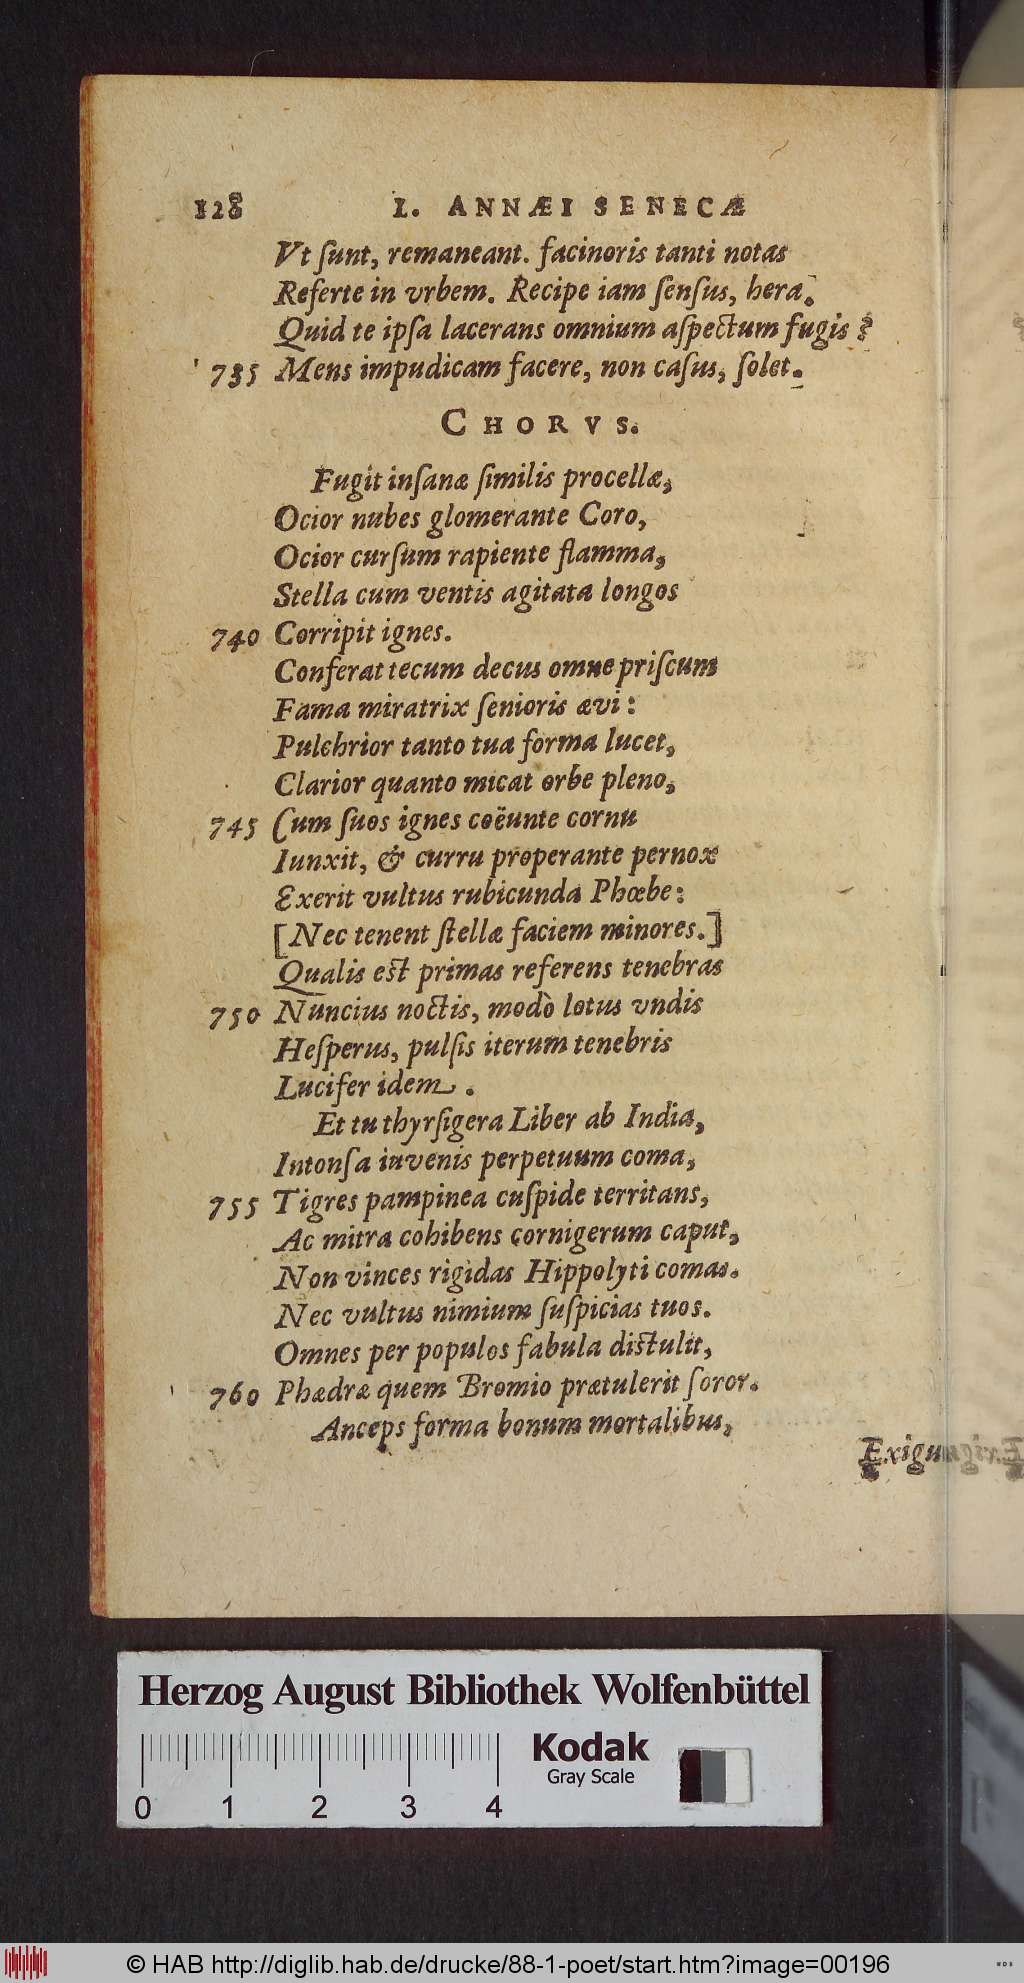 128 L. ANNÆI SENECÆ
Vt ſunt, remaneant. facinoris tanti notas
Referte in vrbem. Recipe iam ſenſus, hera.
Quid te ipſa lacerans omnium aſpectum fugis?
735 Mens impudicam facere, non caſus, ſolet.
CHORVS.
Fugit inſanæ ſimilis procellæ,
Ocior nubes glomerante Coro,
Ocior curſum rapiente flamma,
Stella cum ventis agitata longos
740 Corripit ignes.
Conferat tecum decus omne priſcum
Fama miratrix ſenioris ævi:
Pulchrior tanto tua forma lucet,
Clarior quanto micat orbe pleno,
745 Cum ſuos ignes coëunte cornu
Iunxit, & curru properante pernox
Exerit vultus rubicunda Phœbe:
[Nec tenent ſtellæ faciem minores.]
Qualis eſt primas referens tenebras
750 Nuncius noctis, modò lotus vndis
Heſperus, pulſis iterum tenebris
Lucifer idem.
Et tu thyrſigera Liber ab India,
Intonſa iuvenis perpetuum coma,
755 Tigres pampinea cuſpide territans,
Ac mitra cohibens cornigerum caput,
Non vinces rigidas Hippolyti comas.
Nec vultus nimium ſuſpicias tuos.
Omnes per populos fabula diſtulit,
760 Phædræ quem Bromio prætulerit ſoror.
Anceps forma bonum mortalibus,
Herzog August Bibliothek Wolfenbüttel
Kodak
Gray Scale
0 1 2 3 4
© HAB http://diglib.hab.de/drucke/88-1-poet/start.htm?image=00196